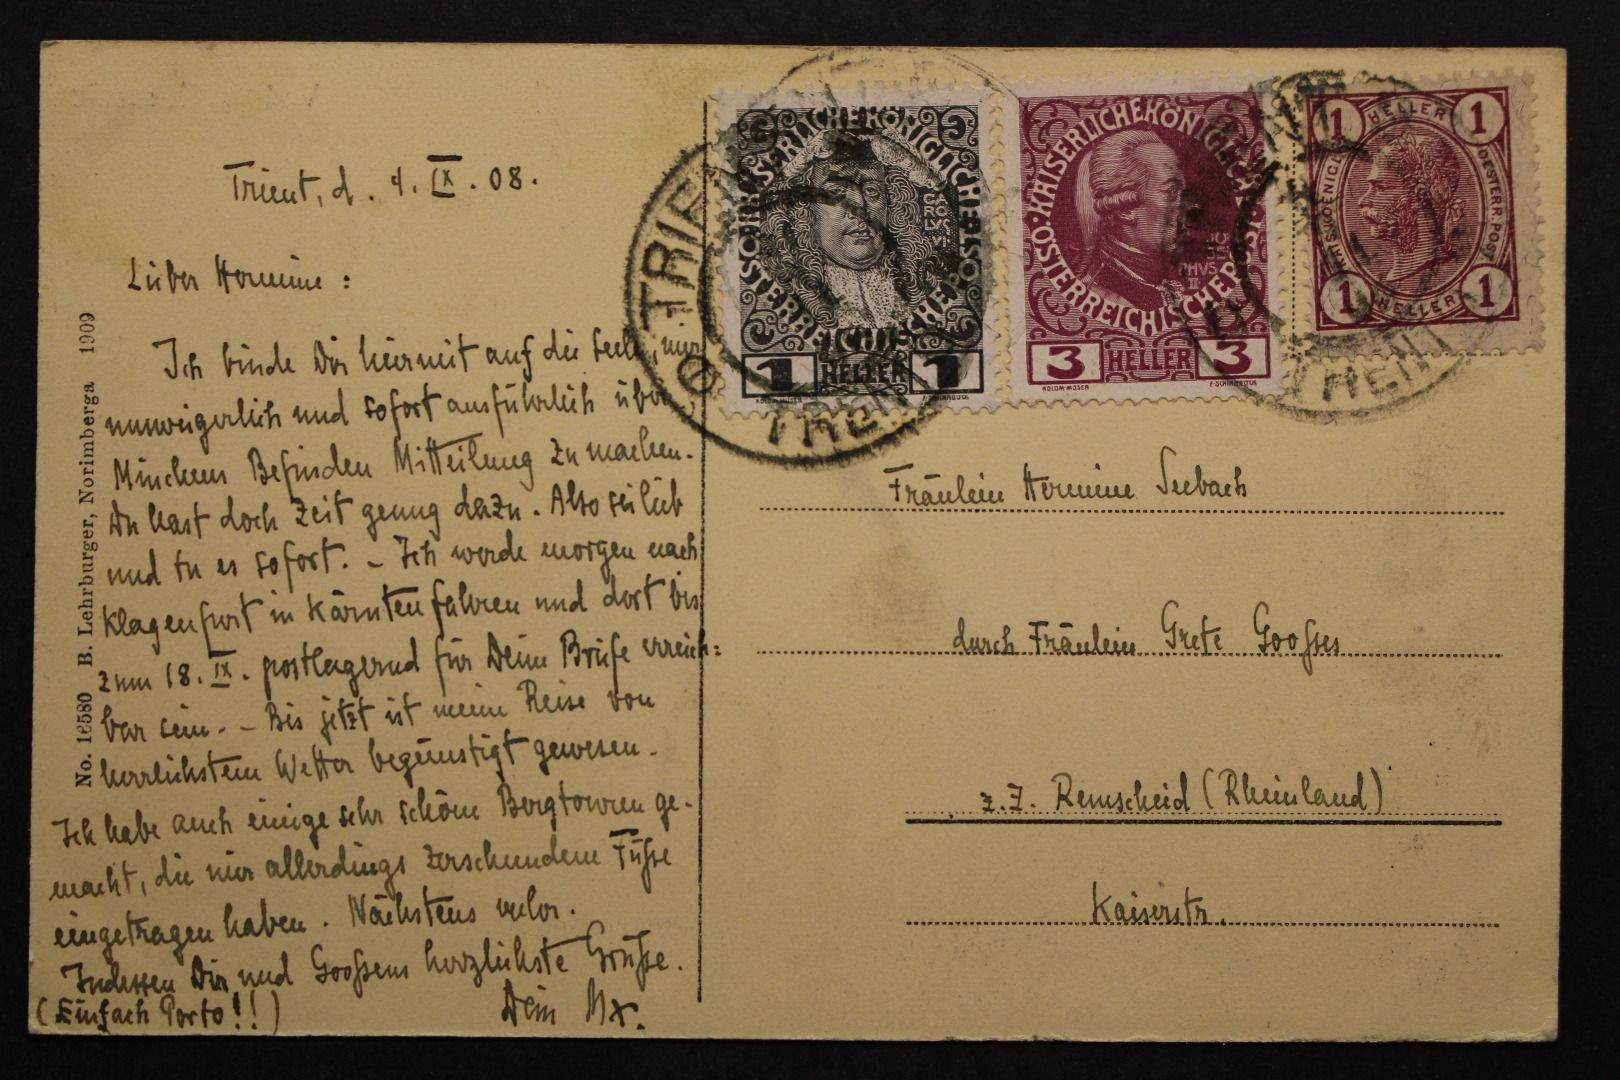 Trient, d. 4. IX. 08.
Lieber Hermine:
Ich binde Dir hiermit auf die Seele, mir
unweigerlich und sofort ausführlich über
Münchens Befinden Mitteilung zu machen.
Du hast doch Zeit genug dazu. Also sei lieb
und tu es sofort. – Ich werde morgen nach
Klagenfurt in Kärnten fahren und dort bis
zum 18. IX. postlagernd für Deine Briefe erreich=
bar sein. – Bis jetzt ist meine Reise von
herrlichstem Wetter begünstigt gewesen.
Ich habe auch einige sehr schöne Bergtouren ge-
macht, die mir allerdings zerschundene Füße
eingetragen haben. Nächstens mehr.
Indessen Dir und Gooßens herzlichste Grüße.
(Einfach Porto!!) Dein
No. 16580 B. Lehrburger, Norimberga 1909
KAISERLICHEKÖNIGLICHE
ÖSTERREICHISCHE POST
CAROLVS VI
1 HELLER 1
KOLOM·MOSER F·SCHIRNBÖCK
KAISERLICHEKÖNIGLICHE
ÖSTERREICHISCHE POST
JOSEPHVS II
3 HELLER 3
KOLOM·MOSER F·SCHIRNBÖCK
1 HELLER 1
KAIS. KOENIGL. OESTERR. POST
1 HELLER 1
TRIENT
Fräulein Hermine Seebach
durch Fräulein Grete Gooßes
z. Z. Remscheid (Rheinland)
Kaiserstr.